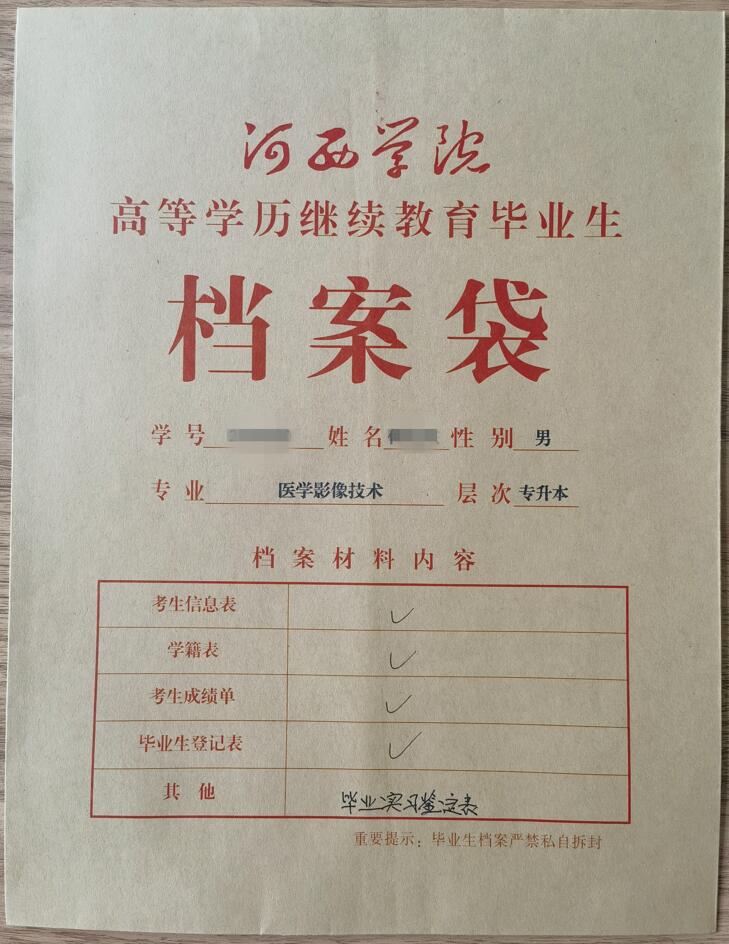 河西学院
高等学历继续教育毕业生
档案袋
学号 姓名 性别 男
专业 医学影像技术 层次 专升本
档案材料内容
考生信息表 ✓
学籍表 ✓
考生成绩单 ✓
毕业生登记表 ✓
其他 毕业实习鉴定表
重要提示：毕业生档案严禁私自拆封